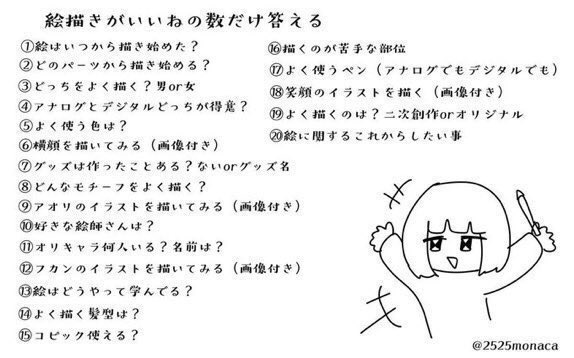 絵描きがいいねの数だけ答える
①絵はいつから描き始めた？
②どのパーツから描き始める？
③どっちをよく描く？男or女
④アナログとデジタルどっちが得意？
⑤よく使う色は？
⑥横顔を描いてみる（画像付き）
⑦グッズは作ったことある？ないorグッズ名
⑧どんなモチーフをよく描く？
⑨アオリのイラストを描いてみる（画像付き）
⑩好きな絵師さんは？
⑪オリキャラ何人いる？名前は？
⑫フカンのイラストを描いてみる（画像付き）
⑬絵はどうやって学んでる？
⑭よく描く髪型は？
⑮コピック使える？
⑯描くのが苦手な部位
⑰よく使うペン（アナログでもデジタルでも）
⑱笑顔のイラストを描く（画像付き）
⑲よく描くのは？二次創作orオリジナル
⑳絵に関するこれからしたい事
@2525monaca